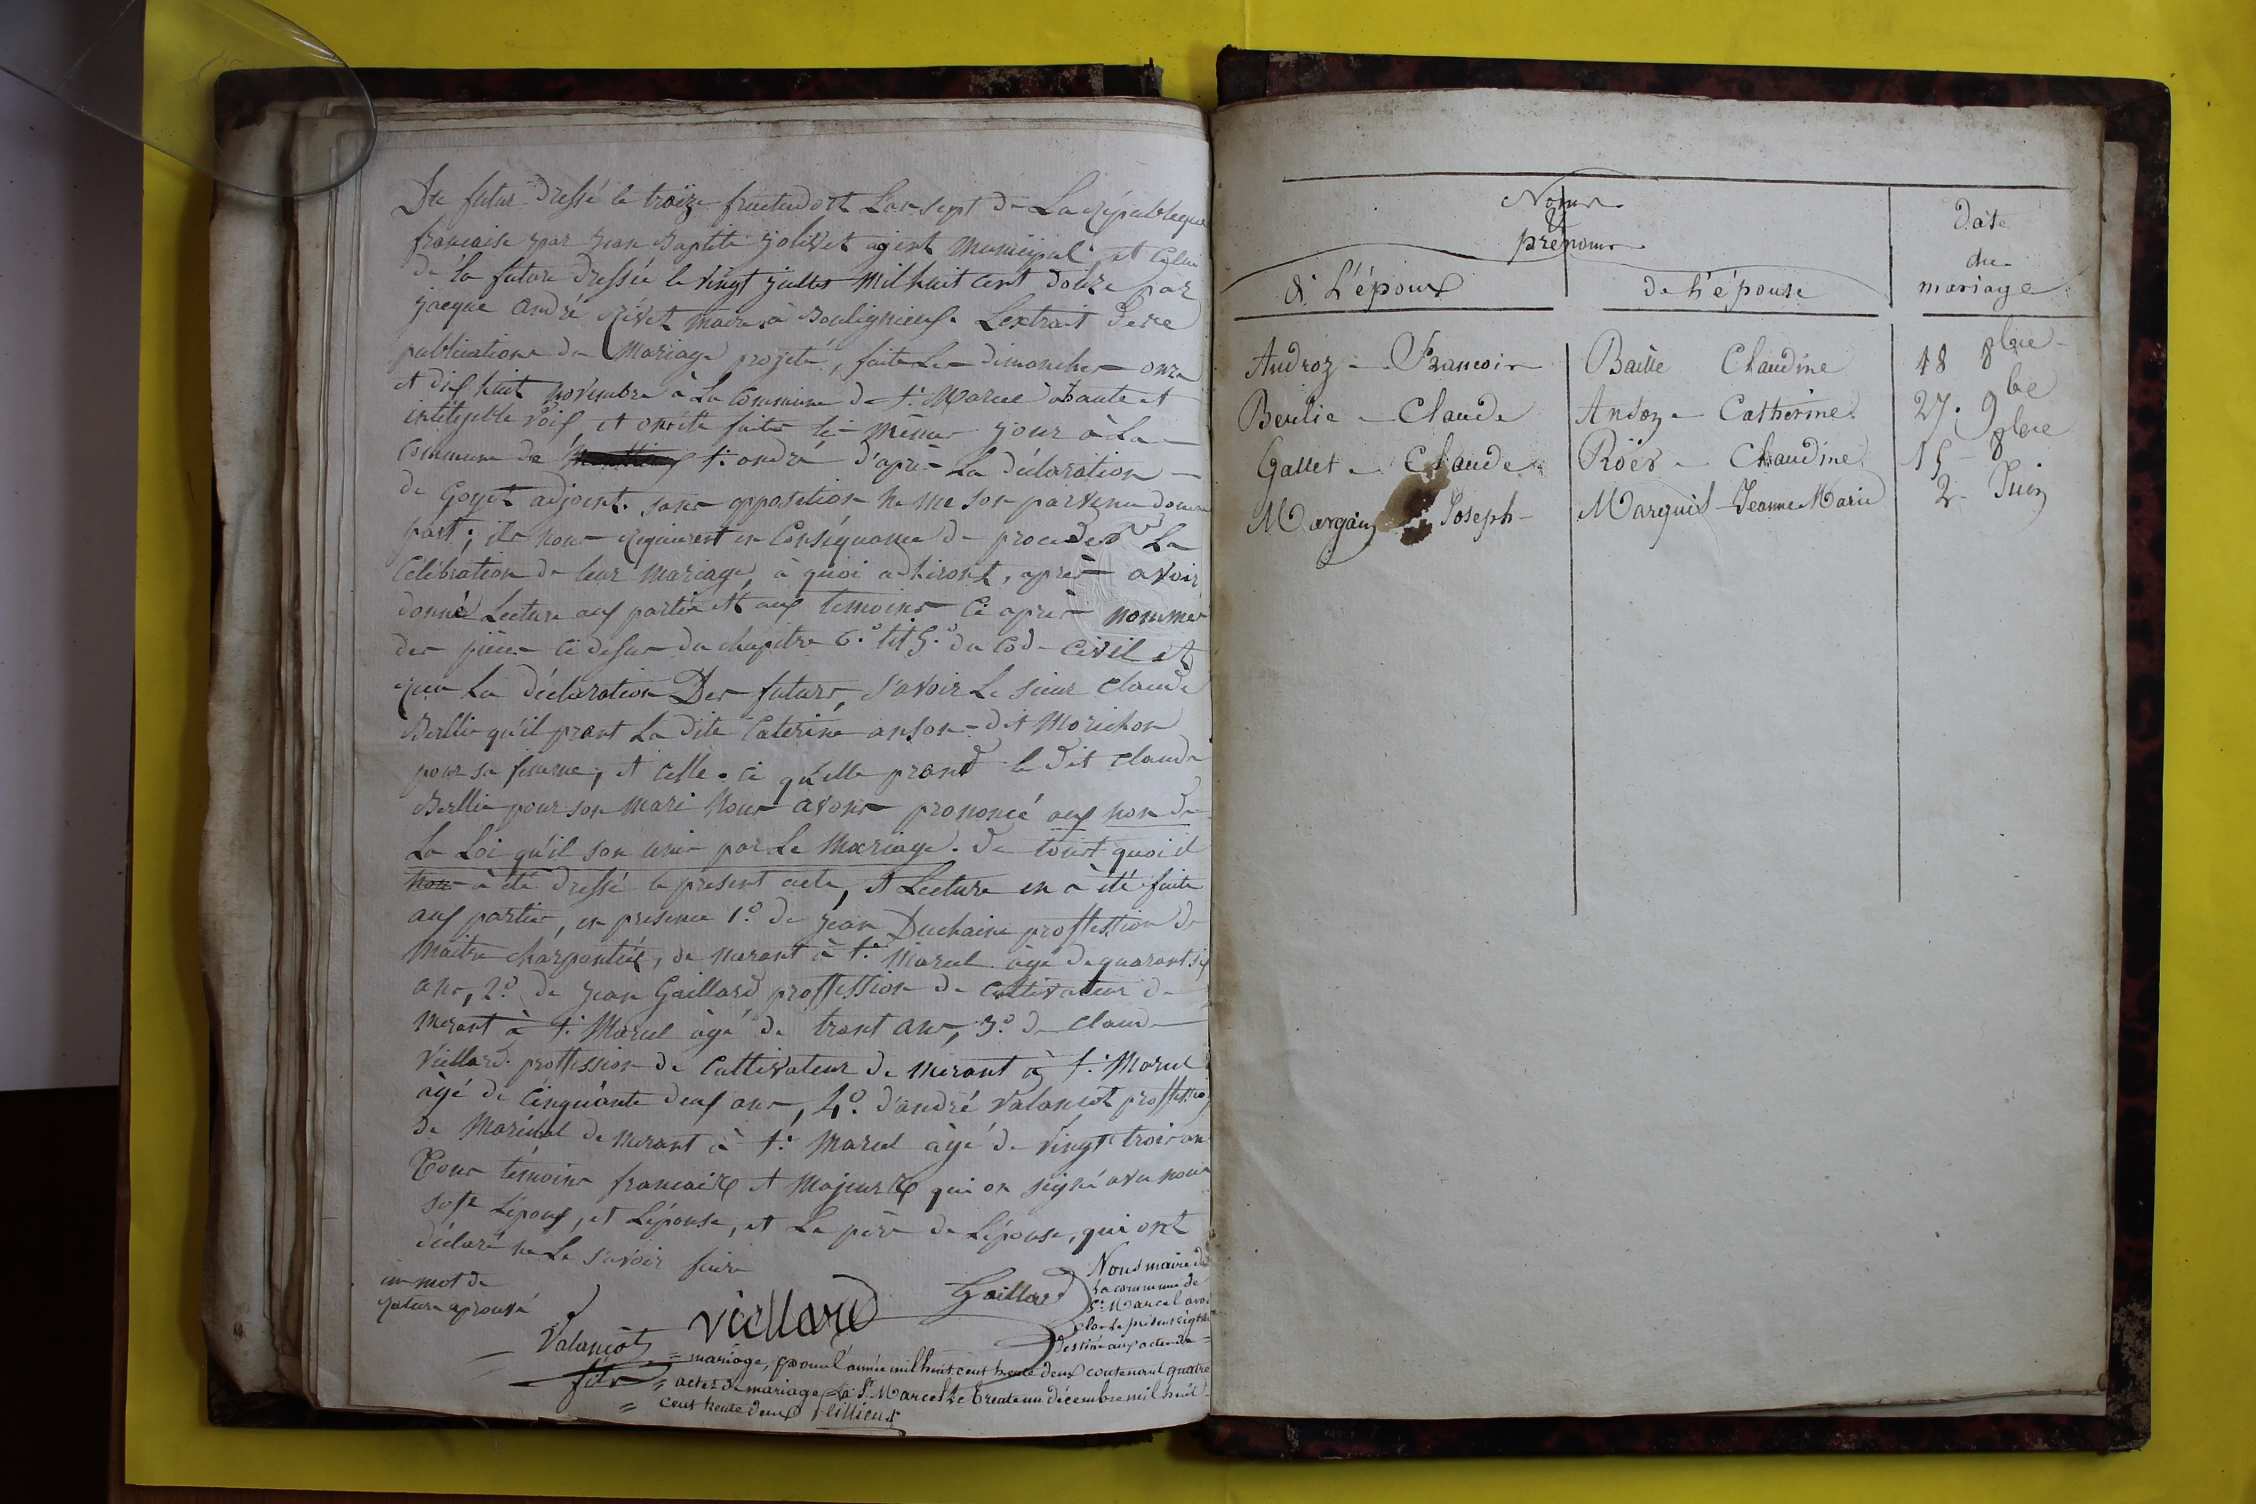 Du futur dressé le traize fructudort Lan sept de La republique
francaise par jean Baptiste jolivet agent municipal, et celui
de la future dressée le vingt juillet mil huit cent douze par
jacque andré Rivet maire à Bouligneux. L'extrait des
publications du Mariage projeté, faite Les dimanches onze
et dix huit novembre à la Commune de St. Marcel à haute et
intiligible voix et ensuite faites les mêmes jour à La
Commune de St. andré d'après La déclaration
de Goyet adjoint. sans opposition ne me son parvenu d'aucune
part; ils nous requierent en Conséquance de proceder La
Célébration de leur mariage, à quoi adhiront, après avoir
donné Lecture aux partie et aux temoins Ci après nommés
des pièces ci desus du chapitre 6.° tit 5.° du Code Civil et
que La déclaration Des futurs, savoir Le sieur Claude
Berlie qu'il prant La dite Caterine anson dit Morichon
pour sa femme, et celle-ci qu'elle prand le dit Claude
Berllie pour son mari Nous avons prononcé aux non de
La Loi qu'il son unis par Le Mariage. De toust quoi il
nous à été dressé le present acte, et Lecture en à été faite
aux parties, en presence 1.° de jean Duchaine proffession de
Maitre charpentier, demerant à St. Marcel âgé de quarant six
ans, 2.° de jean Gaillard proffession de cultivateur de
merant à St. Marcel âgé de trant ans, 3.° de Claude
Viellard proffession de Cultivateur de merant à St. Marcel
âgé de Cinquante deux ans, 4.° d'andré Valancot proffession
de Maréchal demerant à St. Marcel âgé de vingt trois an
Tous témoins francaix et Majeurx qui on signé avec nous
sofe L'époux, et L'épouse, et Le père de L'épouse, qui ont
déclaré ne Le savoir faire
un mot de
rature aprouvé
Valancot
fils
Viellard
Gaillard
Nous maire de
La commune de
St. Marcel avons
clos Le présent régistre
Destiné aux actes de
= mariage, pour l'année mil huit cent trente deux contenant quatre
= actes de mariage, à St. Marcel Le trente un décembre mil huit
= cent trente deux
Noms
&
prénoms
Date
du
mariage
de L'époux
de L'épouse
Androz - Francois Baille Claudine 18 8bre
Berlie - Claude Anson - Catherine 27. 9bre
Gallet - Claude Röer - Claudine 15 - 8bre
Margain Joseph - Marquis - Jeanne Marie 2 - Juin